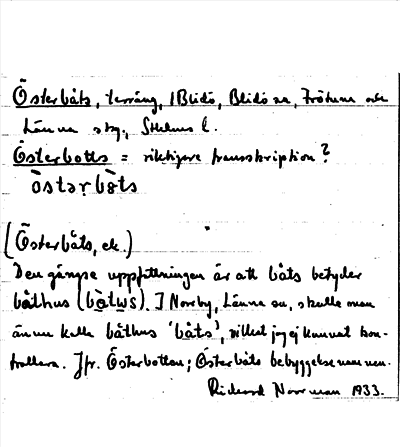 Österbåts, terräng, i Blidö, Blidö sn, Frötuna och
Länna skg., Sthlms l.
Österbotts = riktigare transskription?
òstərbə̀ts
(Österbåts, ek.)
Den gängse uppfattningen är att båts betyder
båthus (bə̀tɯs). I Norrby, Länna sn, skulle man
ännu kalla båthus 'båts', vilket jag ej kunnat kon-
trollera. Jfr. Österbotten; Österbåts bebyggelsenamn.
Rickard Norrman 1933.